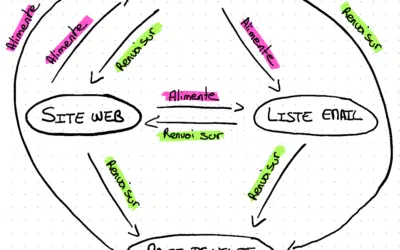 Alimente
Alimente
Renvoi sur
Alimente
Renvoi sur
Alimente
SITE WEB
LISTE EMAIL
Renvoi sur
Renvoi sur
Renvoi sur